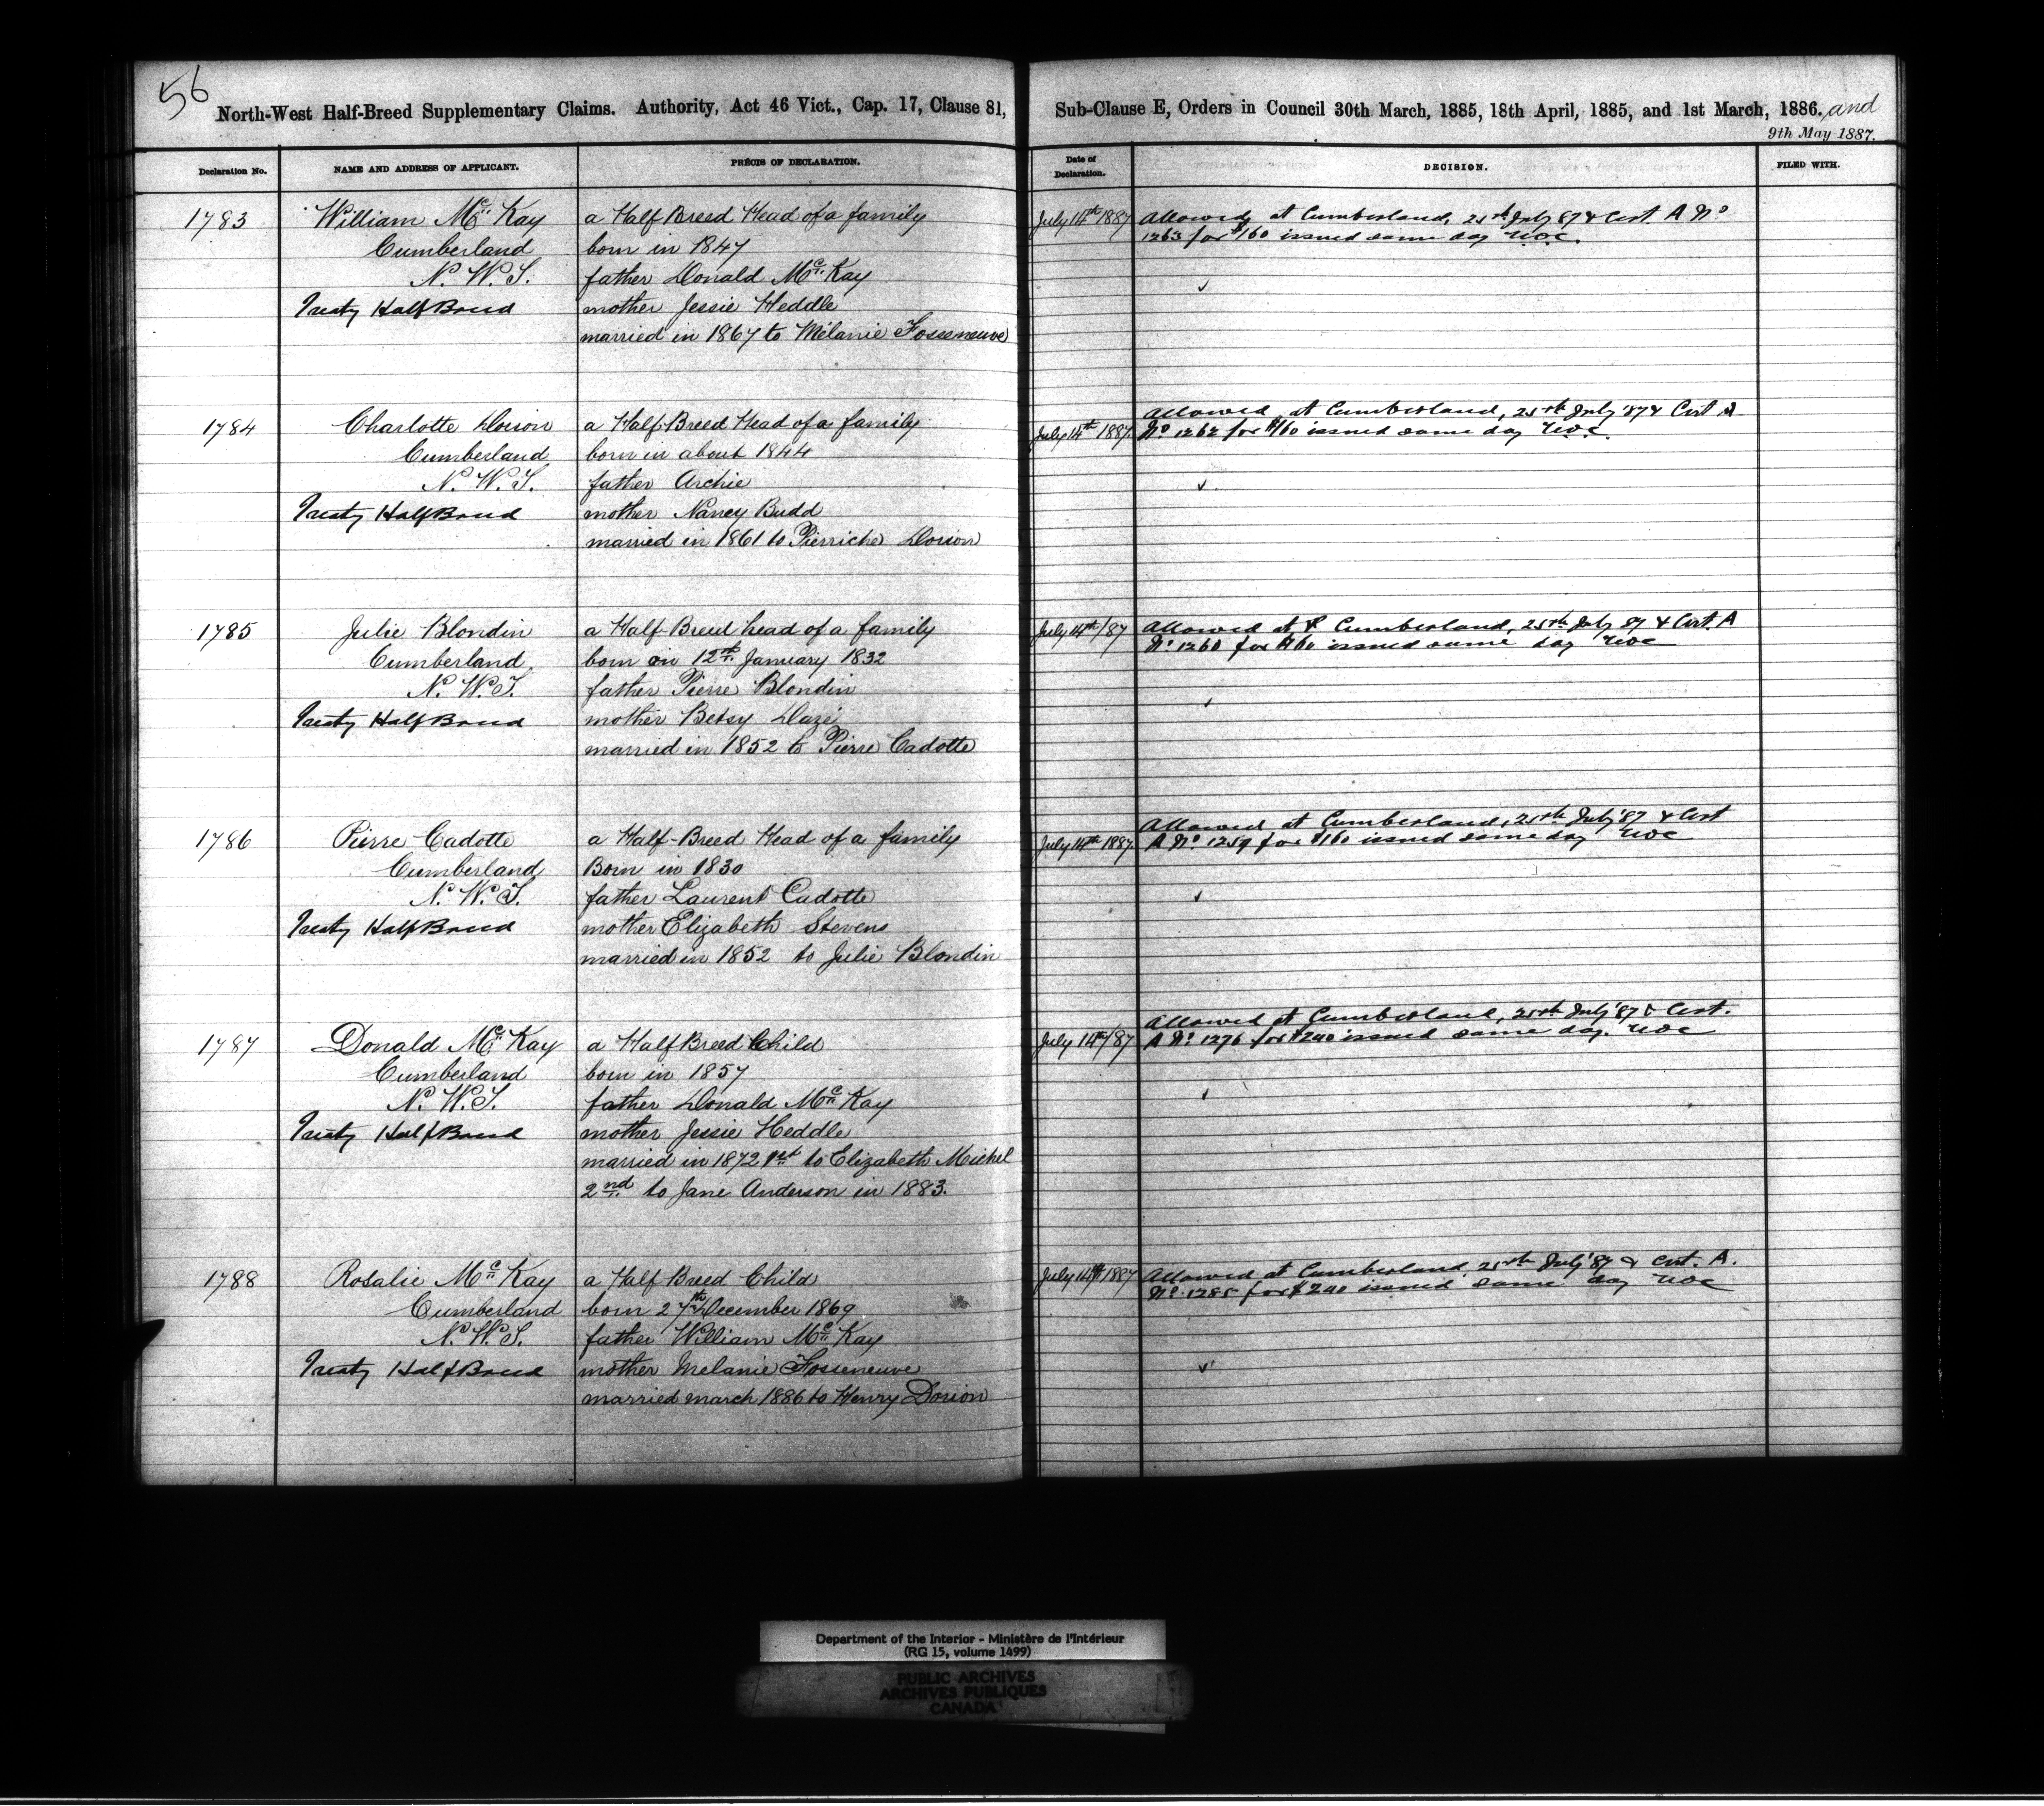 56
North-West Half-Breed Supplementary Claims. Authority, Act 46 Vict., Cap. 17, Clause 81,
Declaration No.
NAME AND ADDRESS OF APPLICANT.
PRÉCIS OF DECLARATION.
Sub-Clause E, Orders in Council 30th March, 1885, 18th April, 1885, and 1st March, 1886. and
9th May 1887.
Date of
Declaration.
DECISION.
FILED WITH.
1783
William Mc Kay
Cumberland
N. W. T.
Treaty Half Breed
a Half Breed Head of a family
born in 1847
father Donald Mc Kay
mother Jessie Heddle
married in 1867 to Mélanie Fosseneuve
July 14th 1887
Allowed, at Cumberland, 25th July 87 & Cert. A No
1263 for $160 issued same day
1784
Charlotte Dorion
Cumberland
N. W. T.
Treaty Half Breed
a Half-Breed Head of a family
born in about 1844
father Archie
mother Nancy Budd
married in 1861 to Pierriche Dorion
July 14th 1887.
Allowed, at Cumberland, 25th July '87 & Cert A
No 1262 for $160 issued same day
1785
Julie Blondin
Cumberland
N. W. T.
Treaty Half Breed
a Half-Breed head of a family
born on 12th January 1832
father Pierre Blondin
mother Betsy Dazé
married in 1852 to Pierre Cadotte
July 14th/87
Allowed at Cumberland, 25th July 87 & Cert. A
No 1260 for $160 issued same day
1786
Pierre Cadotte
Cumberland
N. W. T.
Treaty Half Breed
a Half-Breed Head of a family
Born in 1830
father Laurent Cadotte
mother Elizabeth Stevens
married in 1852 to Julie Blondin
July 14th 1887.
Allowed at Cumberland, 25th July '87 & Cert
A No. 1259 for $160 issued same day
1787
Donald Mc Kay
Cumberland
N. W. T.
Treaty Half Breed
a Half Breed Child
born in 1857
father Donald Mc Kay
mother Jessie Heddle
married in 1872 1st to Elizabeth Michel
2nd to Jane Anderson in 1883.
July 14th/87
Allowed at Cumberland, 25th July '87 & Cert.
A No. 1276 for $240 issued same day.
1788
Rosalie Mc Kay
Cumberland
N. W. T.
Treaty Half Breed
a Half Breed Child
born 27th December 1869
father William Mc Kay
mother Melanie Fosseneuve
married march 1886 to Henry Dorion
July 14th 1887
Allowed at Cumberland 25th July '87 & Cert. A.
No. 1285 for $240 issued same day
Department of the Interior - Ministère de l'Intérieur
(RG 15, volume 1499)
PUBLIC ARCHIVES
ARCHIVES PUBLIQUES
CANADA